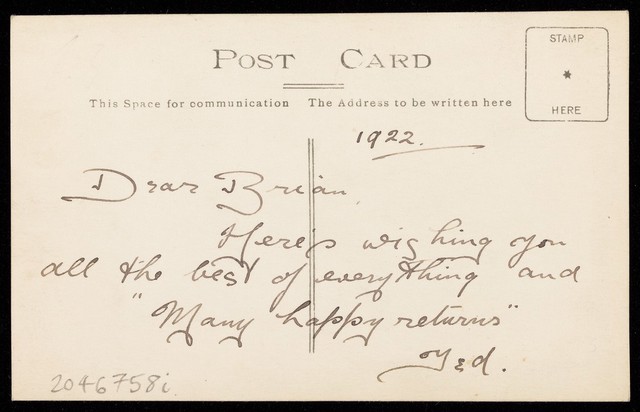 POST CARD
STAMP
*
HERE
This Space for communication The Address to be written here
1922.
Dear Brian,
Here's wishing you
all the best of everything and
"Many happy returns"
Ted.
2046758i